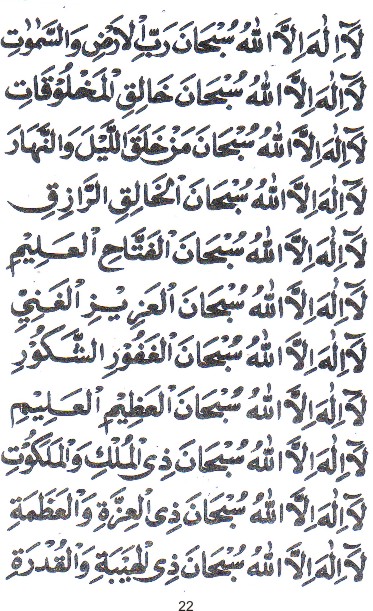 لَآ اِلٰهَ اِلَّا اللّٰهُ سُبْحَانَ رَبِّ الْاَرْضِ وَالسَّمٰوٰتِ
لَآ اِلٰهَ اِلَّا اللّٰهُ سُبْحَانَ خَالِقِ الْمَخْلُوْقَاتِ
لَآ اِلٰهَ اِلَّا اللّٰهُ سُبْحَانَ مَنْ خَلَقَ اللَّيْلَ وَالنَّهَارَ
لَآ اِلٰهَ اِلَّا اللّٰهُ سُبْحَانَ الْخَالِقِ الرَّازِقِ
لَآ اِلٰهَ اِلَّا اللّٰهُ سُبْحَانَ الْفَتَّاحِ الْعَلِيْمِ
لَآ اِلٰهَ اِلَّا اللّٰهُ سُبْحَانَ الْعَزِيْزِ الْغَنِيِّ
لَآ اِلٰهَ اِلَّا اللّٰهُ سُبْحَانَ الْغَفُوْرِ الشَّكُوْرِ
لَآ اِلٰهَ اِلَّا اللّٰهُ سُبْحَانَ الْعَظِيْمِ الْعَلِيْمِ
لَآ اِلٰهَ اِلَّا اللّٰهُ سُبْحَانَ ذِى الْمُلْكِ وَالْمَلَكُوْتِ
لَآ اِلٰهَ اِلَّا اللّٰهُ سُبْحَانَ ذِى الْعِزَّةِ وَالْعَظَمَةِ
لَآ اِلٰهَ اِلَّا اللّٰهُ سُبْحَانَ ذِى الْهَيْبَةِ وَالْقُدْرَةِ
22